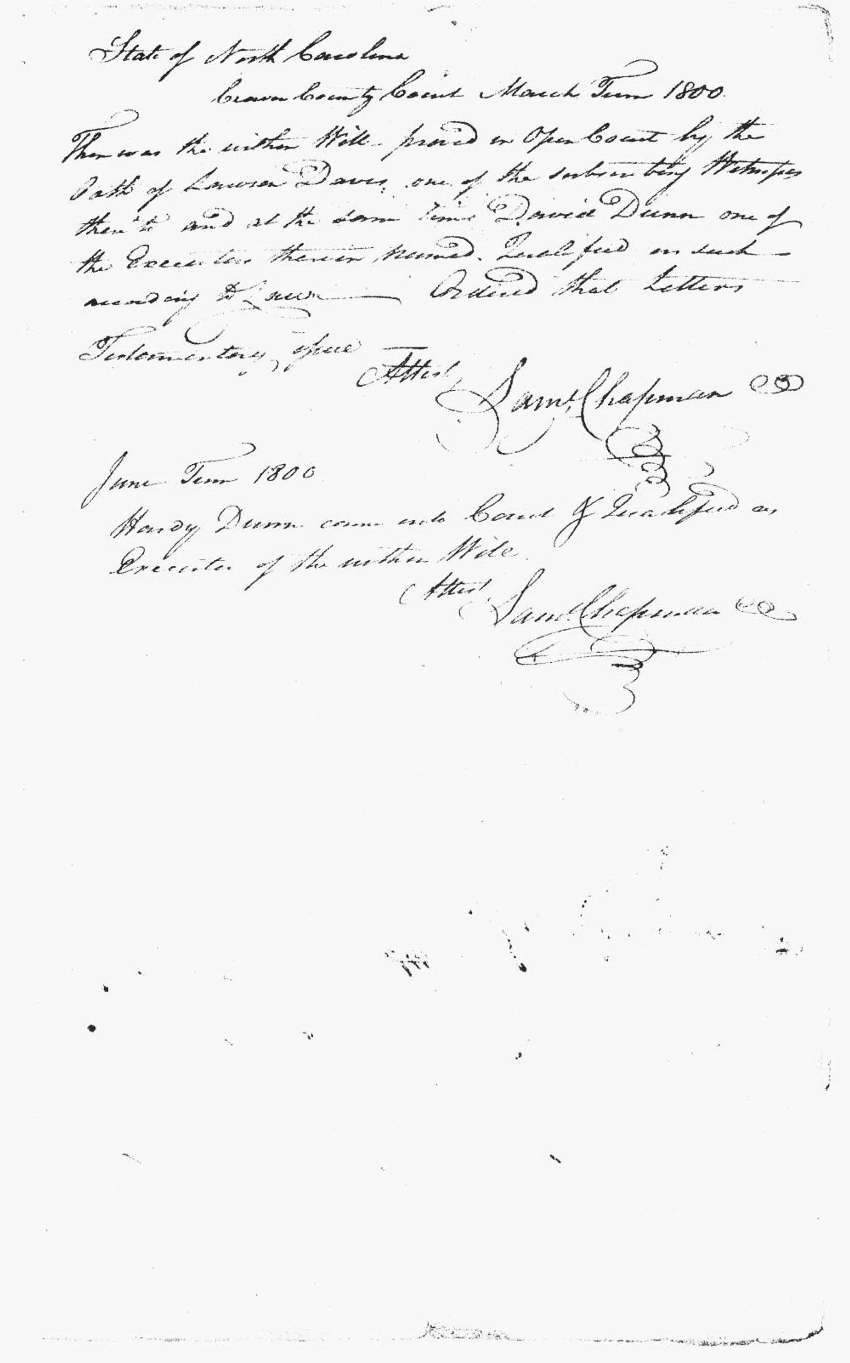 State of North Carolina
Craven County Court March Term 1800.
Then was the within Will proved in Open Court by the
Oath of Lawson Davis, one of the subscribing Witnesses
thereto and at the same time David Dunn one of
the Executors therein named. Qualified as such
according to Law — Ordered that Letters
Testamentary issue
Attest,
Saml. Chapman CC
June Term 1800
Hardy Dunn came into Court & Qualified as
Executor of the within Will.
Attest, Saml. Chapman CC